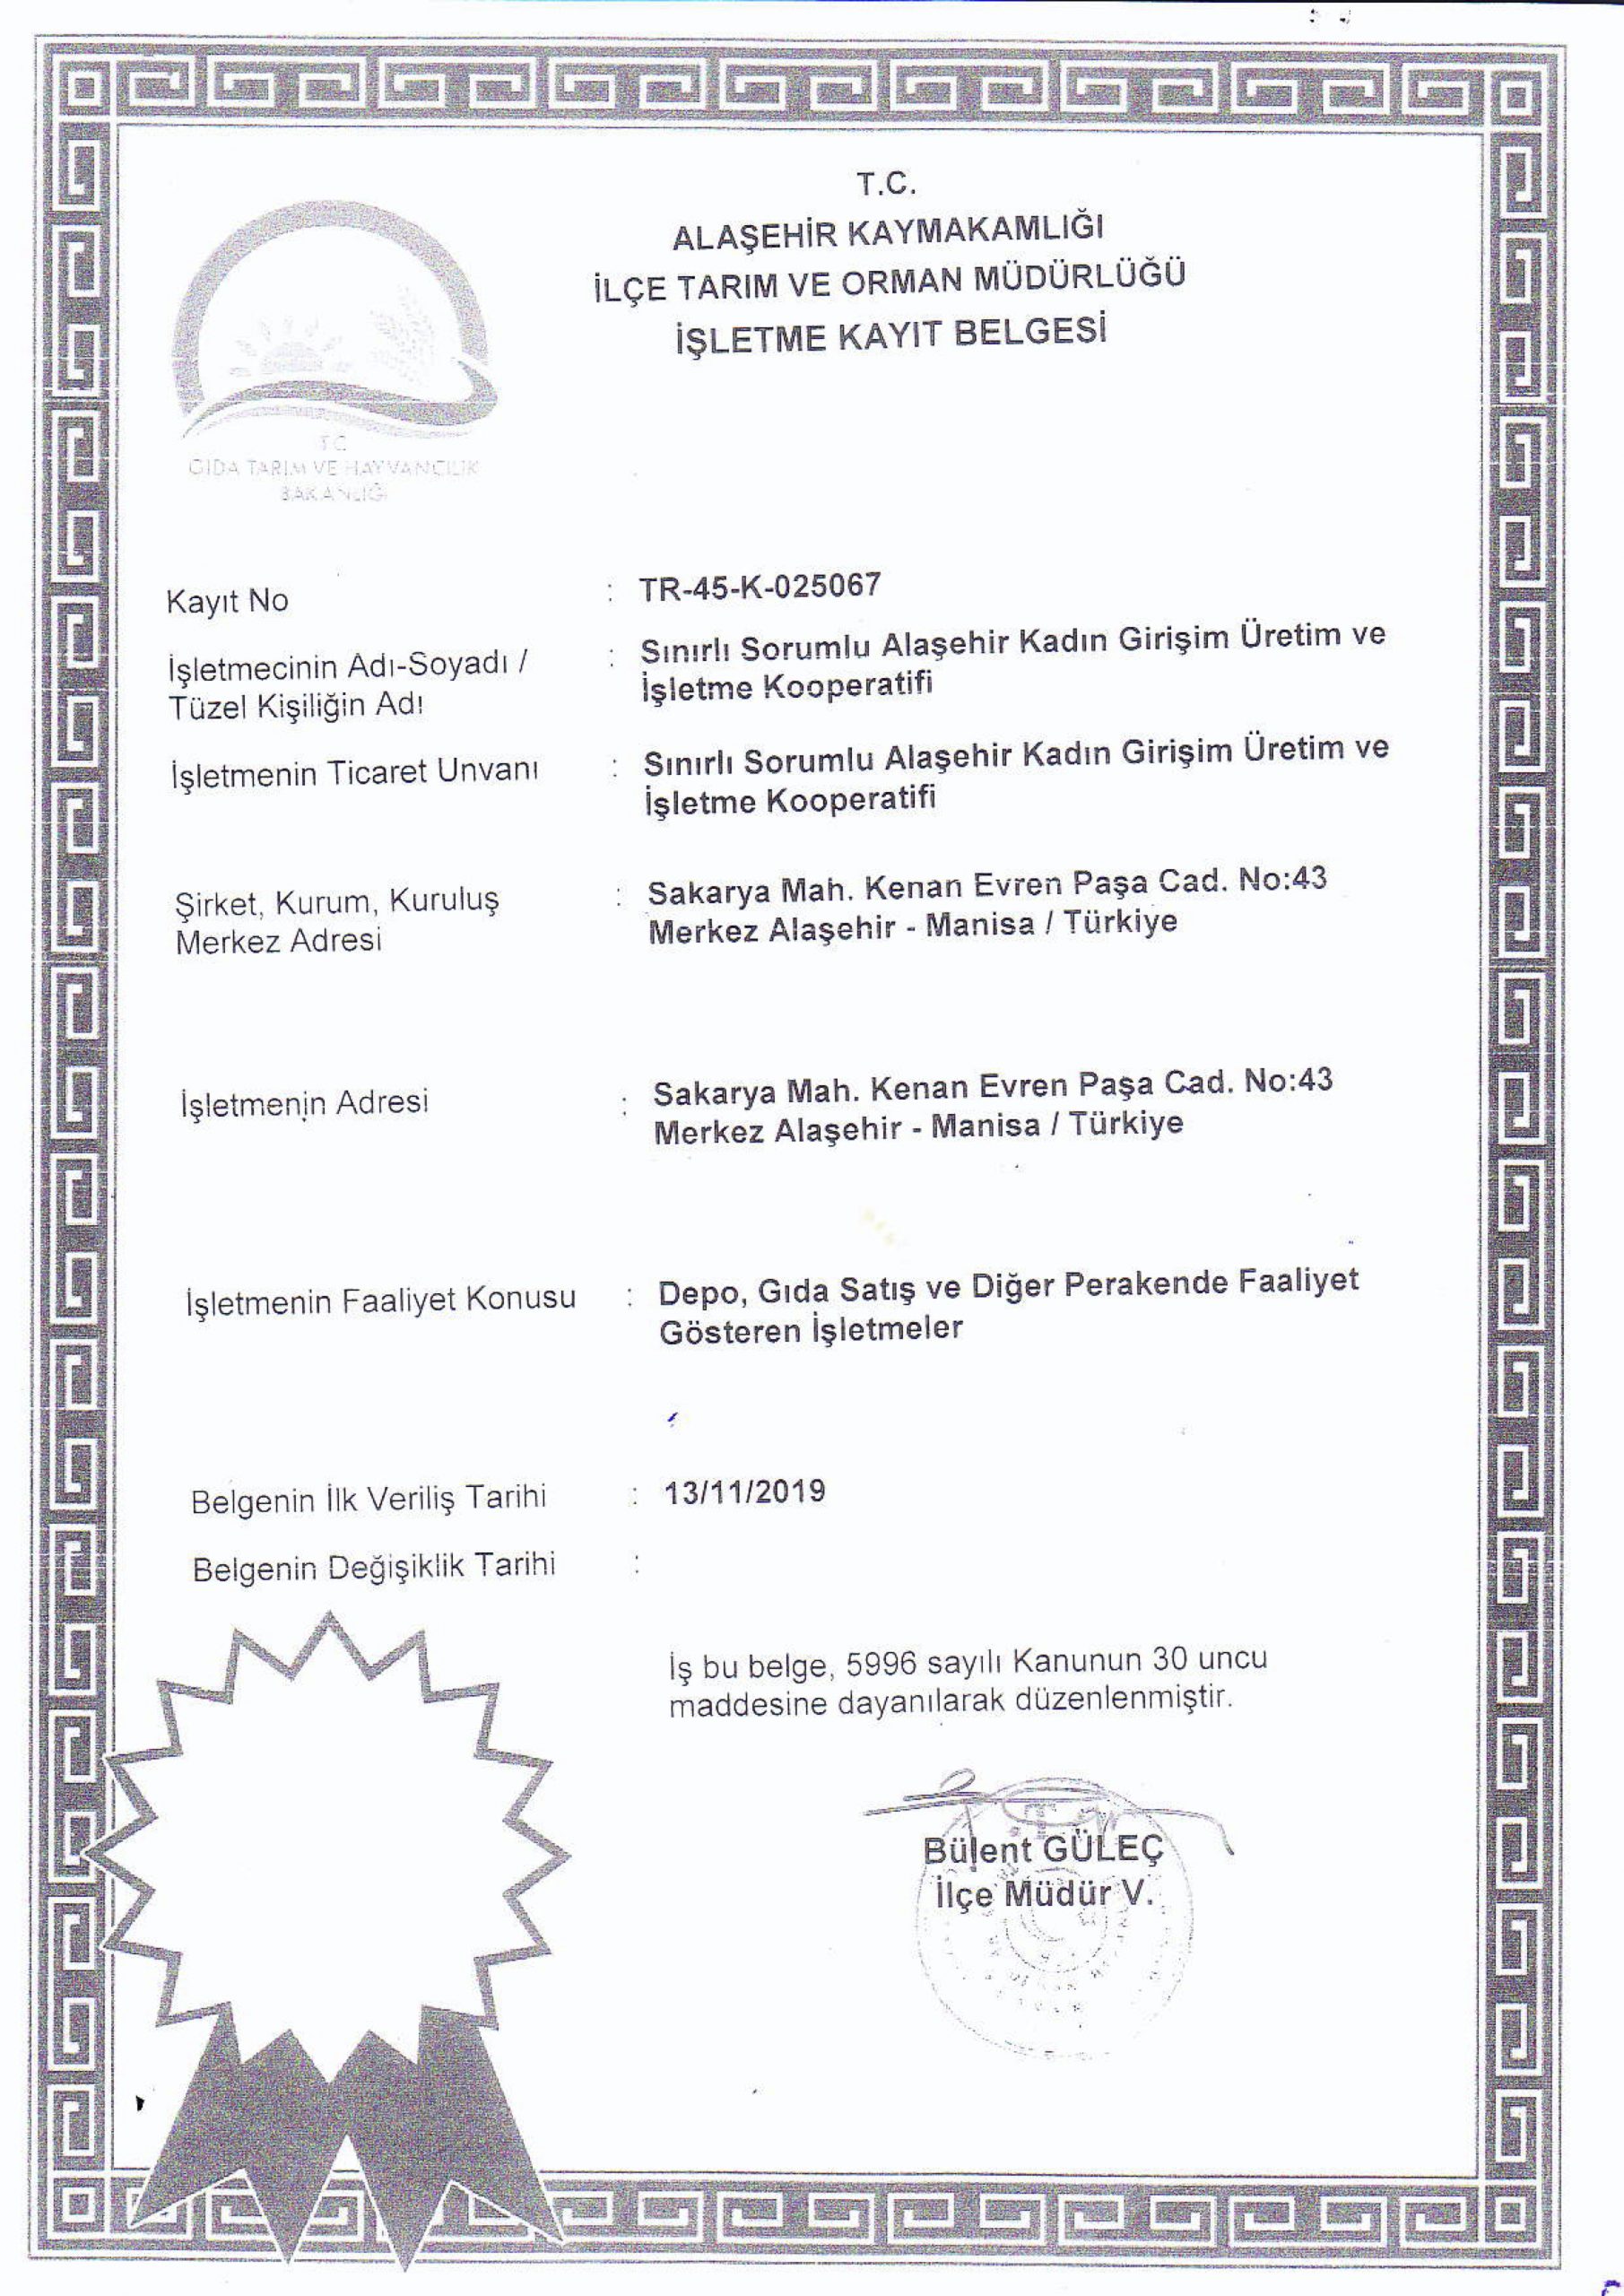 T.C.
ALAŞEHİR KAYMAKAMLIĞI
İLÇE TARIM VE ORMAN MÜDÜRLÜĞÜ
İŞLETME KAYIT BELGESİ
T.C.
GIDA TARIM VE HAYVANCILIK
BAKANLIĞI
Kayıt No : TR-45-K-025067
İşletmecinin Adı-Soyadı / : Sınırlı Sorumlu Alaşehir Kadın Girişim Üretim ve
Tüzel Kişiliğin Adı İşletme Kooperatifi
İşletmenin Ticaret Unvanı : Sınırlı Sorumlu Alaşehir Kadın Girişim Üretim ve
İşletme Kooperatifi
Şirket, Kurum, Kuruluş : Sakarya Mah. Kenan Evren Paşa Cad. No:43
Merkez Adresi Merkez Alaşehir - Manisa / Türkiye
İşletmenin Adresi : Sakarya Mah. Kenan Evren Paşa Cad. No:43
Merkez Alaşehir - Manisa / Türkiye
İşletmenin Faaliyet Konusu : Depo, Gıda Satış ve Diğer Perakende Faaliyet
Gösteren İşletmeler
Belgenin İlk Veriliş Tarihi : 13/11/2019
Belgenin Değişiklik Tarihi :
İş bu belge, 5996 sayılı Kanunun 30 uncu
maddesine dayanılarak düzenlenmiştir.
Bülent GÜLEÇ
İlçe Müdür V.